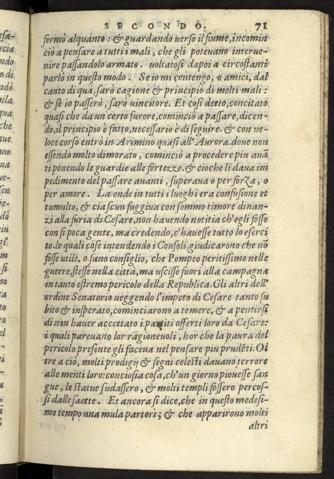 SECONDO. 71
fermò alquanto: & guardando verso il fiume, incomin
ciò a pensare a tutti i mali, che gli poteuano interue-
nire passandolo armato. voltatosi dapoi a circostanti
parlò in questo modo. Se io mi contengo, o amici, dal
canto di quà, sarò cagione & principio di molti mali:
& se io passerò, sarò uincitore. Et cosi detto, concitato
quasi che da un certo furore, cominciò a passare, dicen-
do, il principio è futto, necessario è di seguire. & con ue-
loce corso entrò in Arimino quasi all'Aurora. doue non
essendo molto dimorato, cominciò a procedere piu auā
ti ponendo le guardie alle fortezze. & ciò che li daua im
pedimento del passare auanti, superaua o per forza, o
per amore. La onde in tutti i luoghi era confusione et
tumulto, & ciascun fuggiua con sommo timore dinan-
zi alla furia di Cesare, non hauendo notitia ch'egli fosse
con si poca gente, ma credendo, c'hauesse tutto lo eserci
to. le quali cose intendendo i Consoli, giudicarono che nō
fosse utile, o sano consiglio, che Pompeo peritissimo nelle
guerre, stesse nella città, ma uscisse fuori alla campagna
in tanto estremo pericolo della Republica. Gli altri dell'-
ordine Senatorio ueggendo l'impeto di Cesare tanto su
bito & insperato, cominciarono a temere, & a pentirsi
di non hauer accettato i partiti offerti loro da Cesare:
i quali pareuano lor ragioneuoli, hor che la paura del
pericolo presente gli faceua nel pensare piu prudēti. Ol
tre a ciò, molti prodigij & segni celesti dauano terrore
alle menti loro: conciosia cosa, ch'un giorno piouesse san
gue, le statue sudassero, & molti templi fossero percos-
si dalle saette. Et ancora si dice, che in questo medesi-
mo tempo una mula partorì; & che apparirono molti
altri